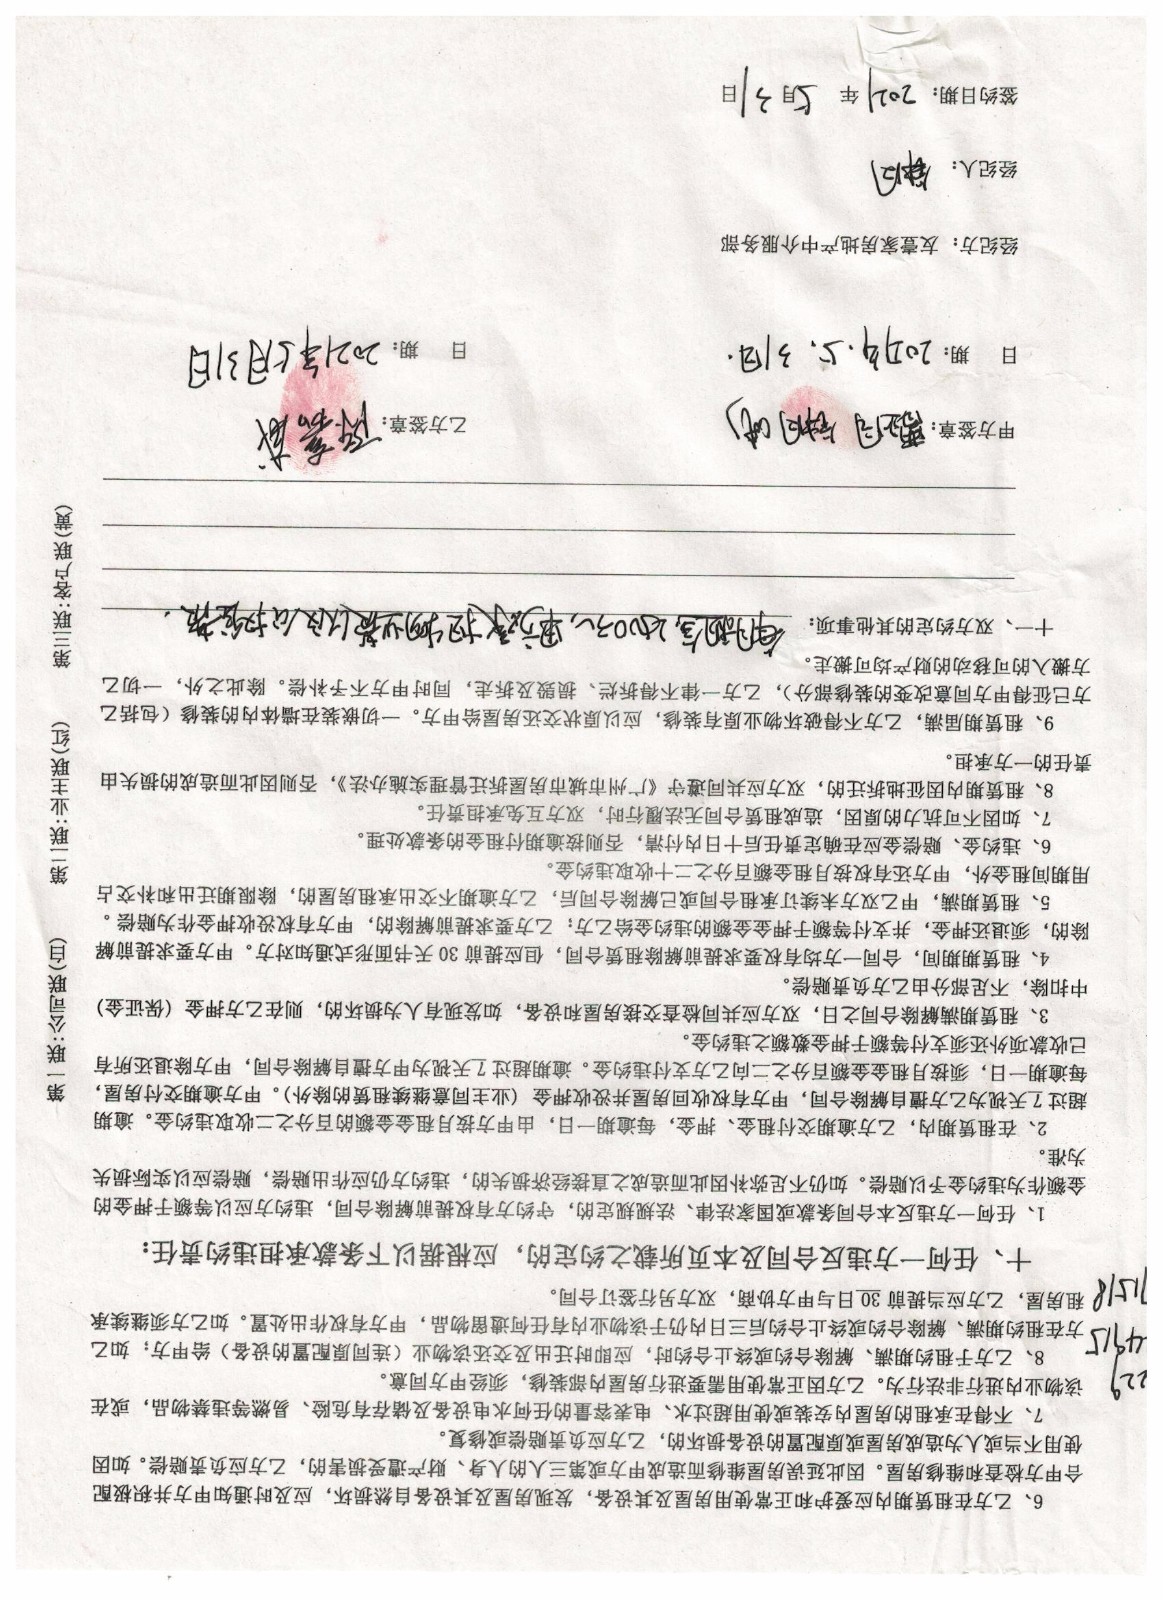 6、乙方在租赁期内应爱护和正常使用房屋及其设备，发现房屋及其设备自然损坏，应及时通知甲方并积极配
合甲方检查和维修房屋。因此延误房屋维修而造成甲方或第三人的人身、财产遭受损害的，乙方应负责赔偿。如因
使用不当或人为造成房屋或原配置的设备损坏的，乙方应负责赔偿或修复。
7、不得在承租的房屋内安装或使用超过水、电表容量的任何水电设备及储存有危险、易燃等违禁物品，或在
该物业内进行非法行为。乙方因正常使用需要进行房屋内部装修，须经甲方同意。
8、乙方于租约期满、解除合约或终止合约时，应即时迁出及交还该物业（连同原配置的设备）给甲方；如乙
方在租约期满、解除合约或终止合约后三日内仍于该物业内有任何遗留物品，甲方有权作出处置。如乙方须继续承
租房屋，乙方应当提前 30 日与甲方协商，双方另行签订合同。
229
4915
71518
十、任何一方违反合同及本页所载之约定的，应根据以下条款承担违约责任：
1、任何一方违反本合同条款或国家法律、法规规定的，守约方有权提前解除合同，违约方应以等额于押金的
金额作为违约金予以赔偿。如仍不足弥补因此而造成之直接经济损失的，违约方仍应作出赔偿，赔偿应以实际损失
为准。
2、在租赁期内，乙方逾期交付租金、押金，每逾期一日，由甲方按月租金金额的百分之二收取违约金。逾期
超过 7 天视为乙方擅自解除合同，甲方有权收回房屋并没收押金（业主同意继续租赁的除外）。甲方逾期交付房屋，
每逾期一日，须按月租金金额百分之二向乙方支付违约金。逾期超过 7 天视为甲方擅自解除合同，甲方除退还所有
已收款项外还须支付等额于押金数额之违约金。
3、租赁期满解除合同之日，双方应共同检查交接房屋和设备，如发现有人为损坏的，则在乙方押金（保证金）
中扣除，不足部分由乙方负责赔偿。
4、租赁期间，合同一方均有权要求提前解除租赁合同，但应提前 30 天书面形式通知对方。甲方要求提前解
除的，须退还押金，并支付等额于押金金额的违约金给乙方；乙方要求提前解除的，甲方有权没收押金作为赔偿。
5、租赁期满，甲乙双方未续订承租合同或已解除合同后，乙方逾期不交出承租房屋的，除限期迁出和补交占
用期间租金外，甲方还有权按月租金额百分之二十收取违约金。
6、违约金、赔偿金应在确定责任后十日内付清，否则按逾期付租金的条款处理。
7、如因不可抗力的原因，造成租赁合同无法履行时，双方互免承担责任。
8、租赁期内因征地拆迁的，双方应共同遵守《广州市城市房屋拆迁管理实施办法》，否则因此而造成的损失由
责任的一方承担。
9、租赁期届满，乙方不得破坏物业原有装修，应以原状交还房屋给甲方。一切嵌装在墙体内的装修（包括乙
方已征得甲方同意改变的装修部分），乙方一律不得拆烂、损毁及拆走，同时甲方不予补偿。除此之外，一切乙
方搬入的可移动的财产均可搬走。
十一、双方约定的其他事项：
第一联:公司联(白)
第二联:业主联(红)
第三联:客户联(黄)
甲方签章：
乙方签章：
日 期：2021年.5.31日.
日 期：2021年5月31日
经纪方：友壹家房地产中介服务部
经纪人：
签约日期：2021年 5月31日